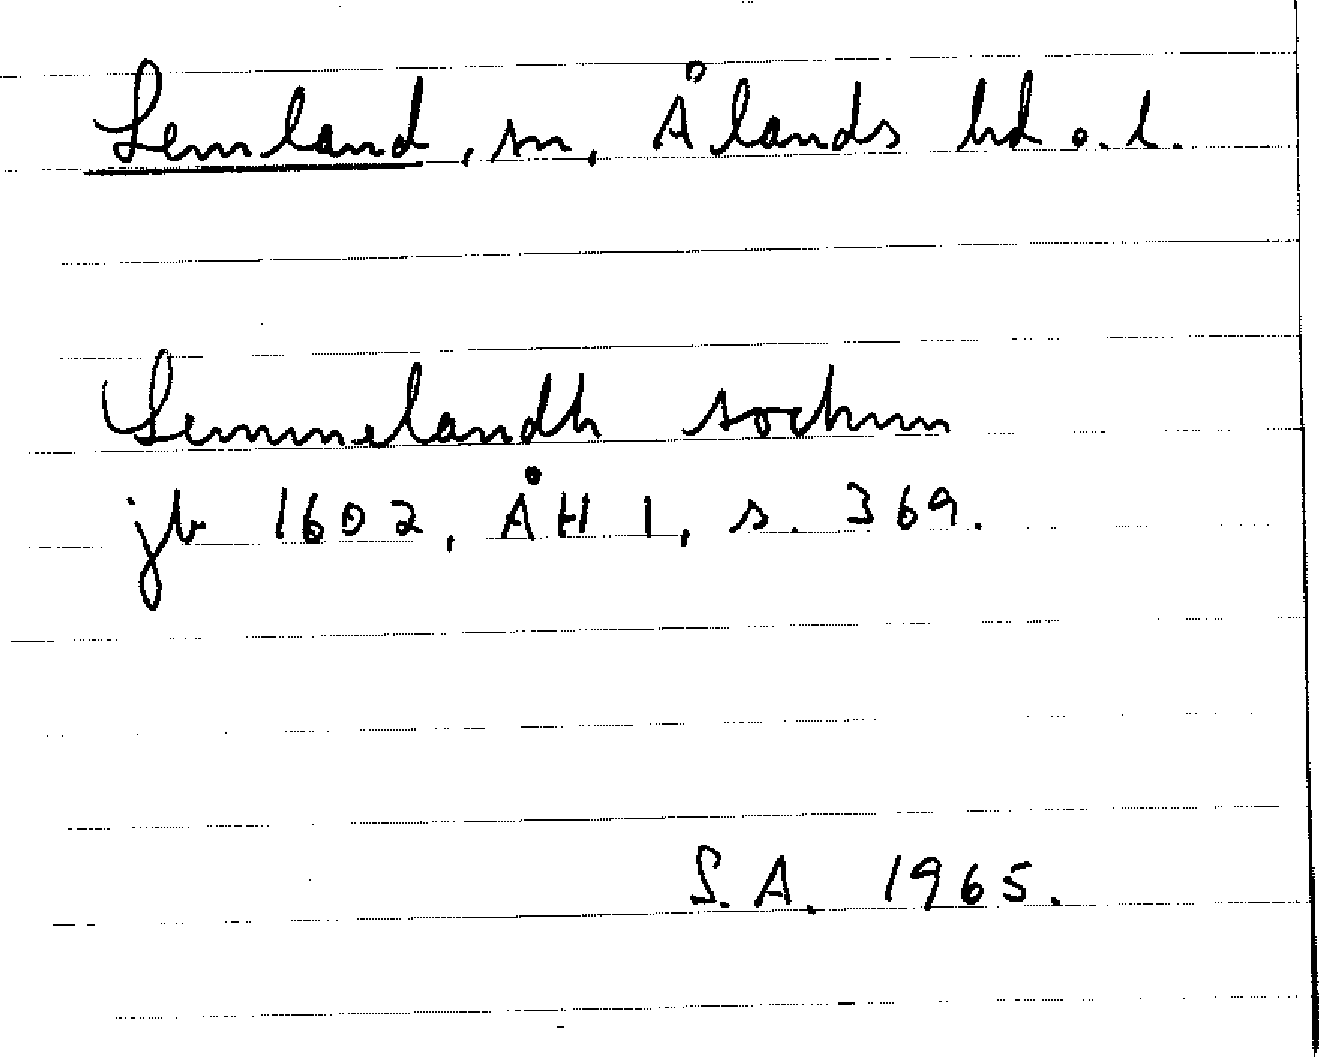 Lemland, sn, Ålands hd o. l.
Lemmelandh sochnn
jb 1602, ÅH 1, s. 369.
S. A. 1965.